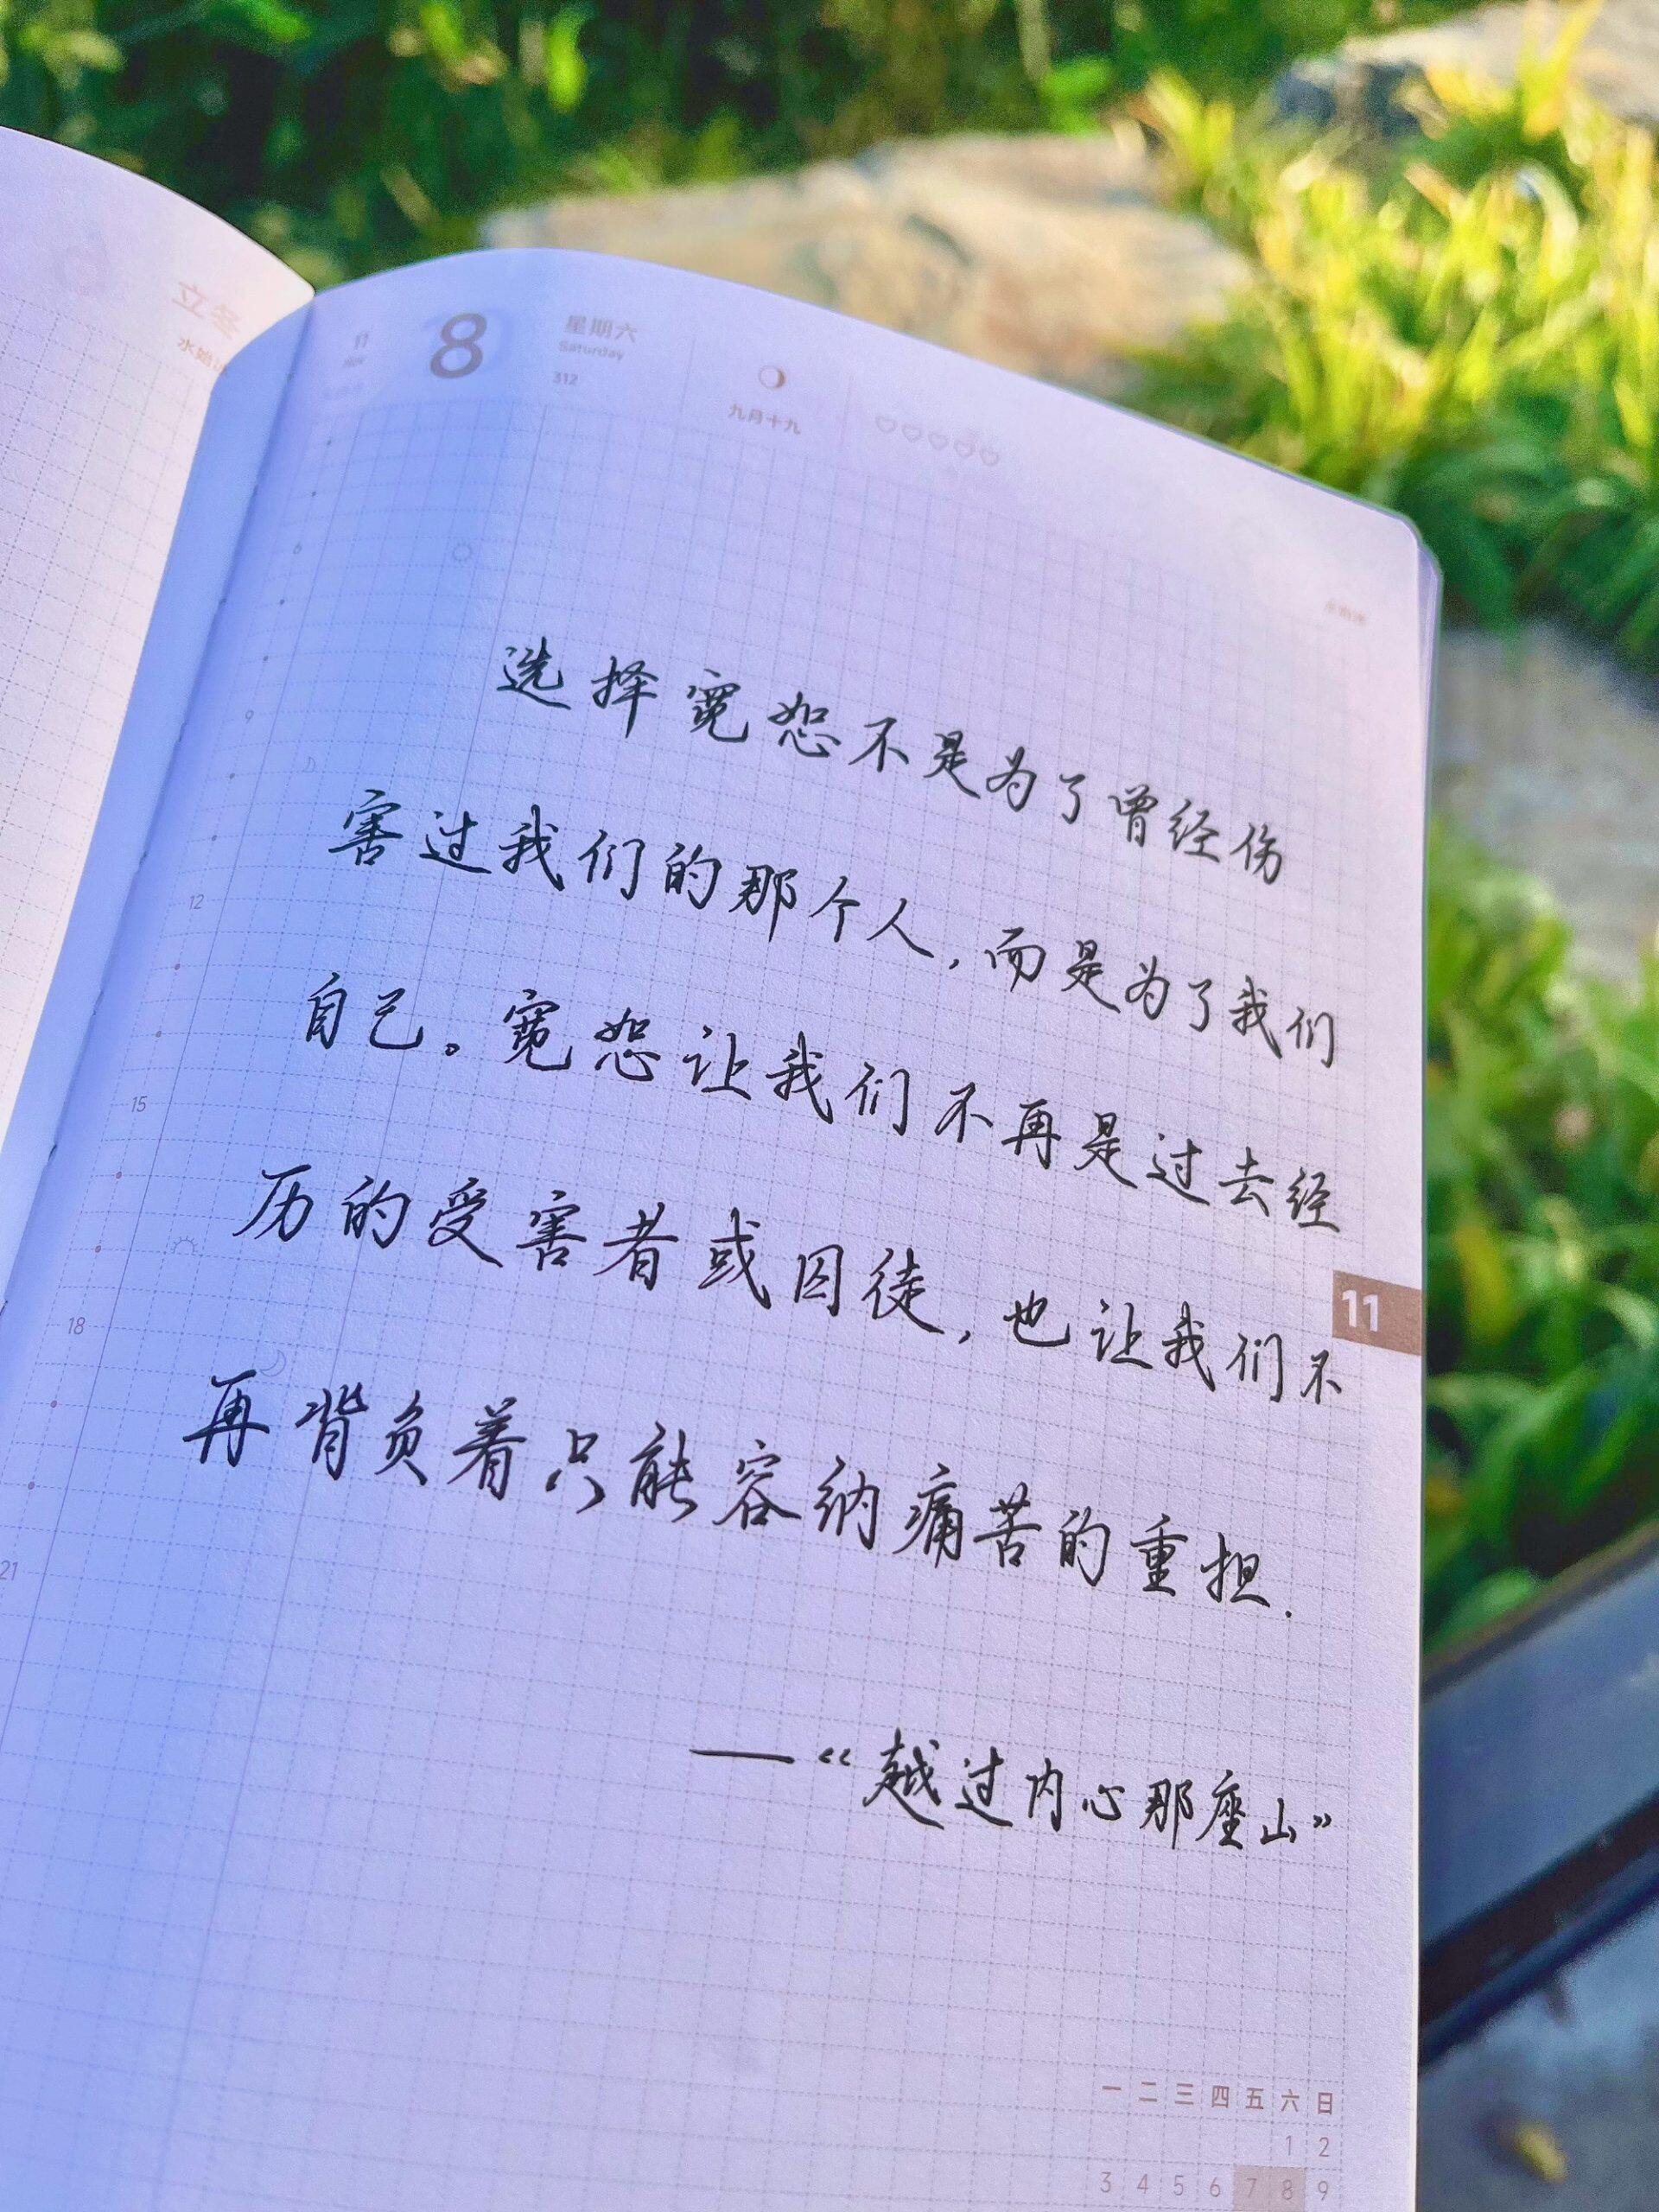 立冬
8
星期六
Saturday
312
九月十九
6
9
12
15
18
21
选择宽恕不是为了曾经伤
害过我们的那个人,而是为了我们
自己。宽恕让我们不再是过去经
历的受害者或囚徒,也让我们不
再背负着只能容纳痛苦的重担.
—“越过内心那座山”
11
一 二 三 四 五 六 日
1 2
3 4 5 6 7 8 9